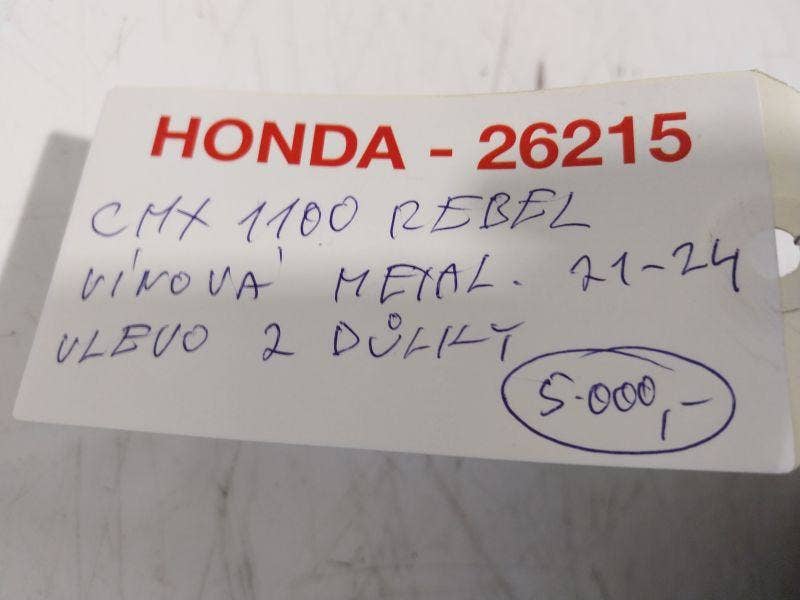 HONDA - 26215
CMX 1100 REBEL
VÍNOVÁ METAL. 21-24
VLEVO 2 DŮLKY
5.000,-